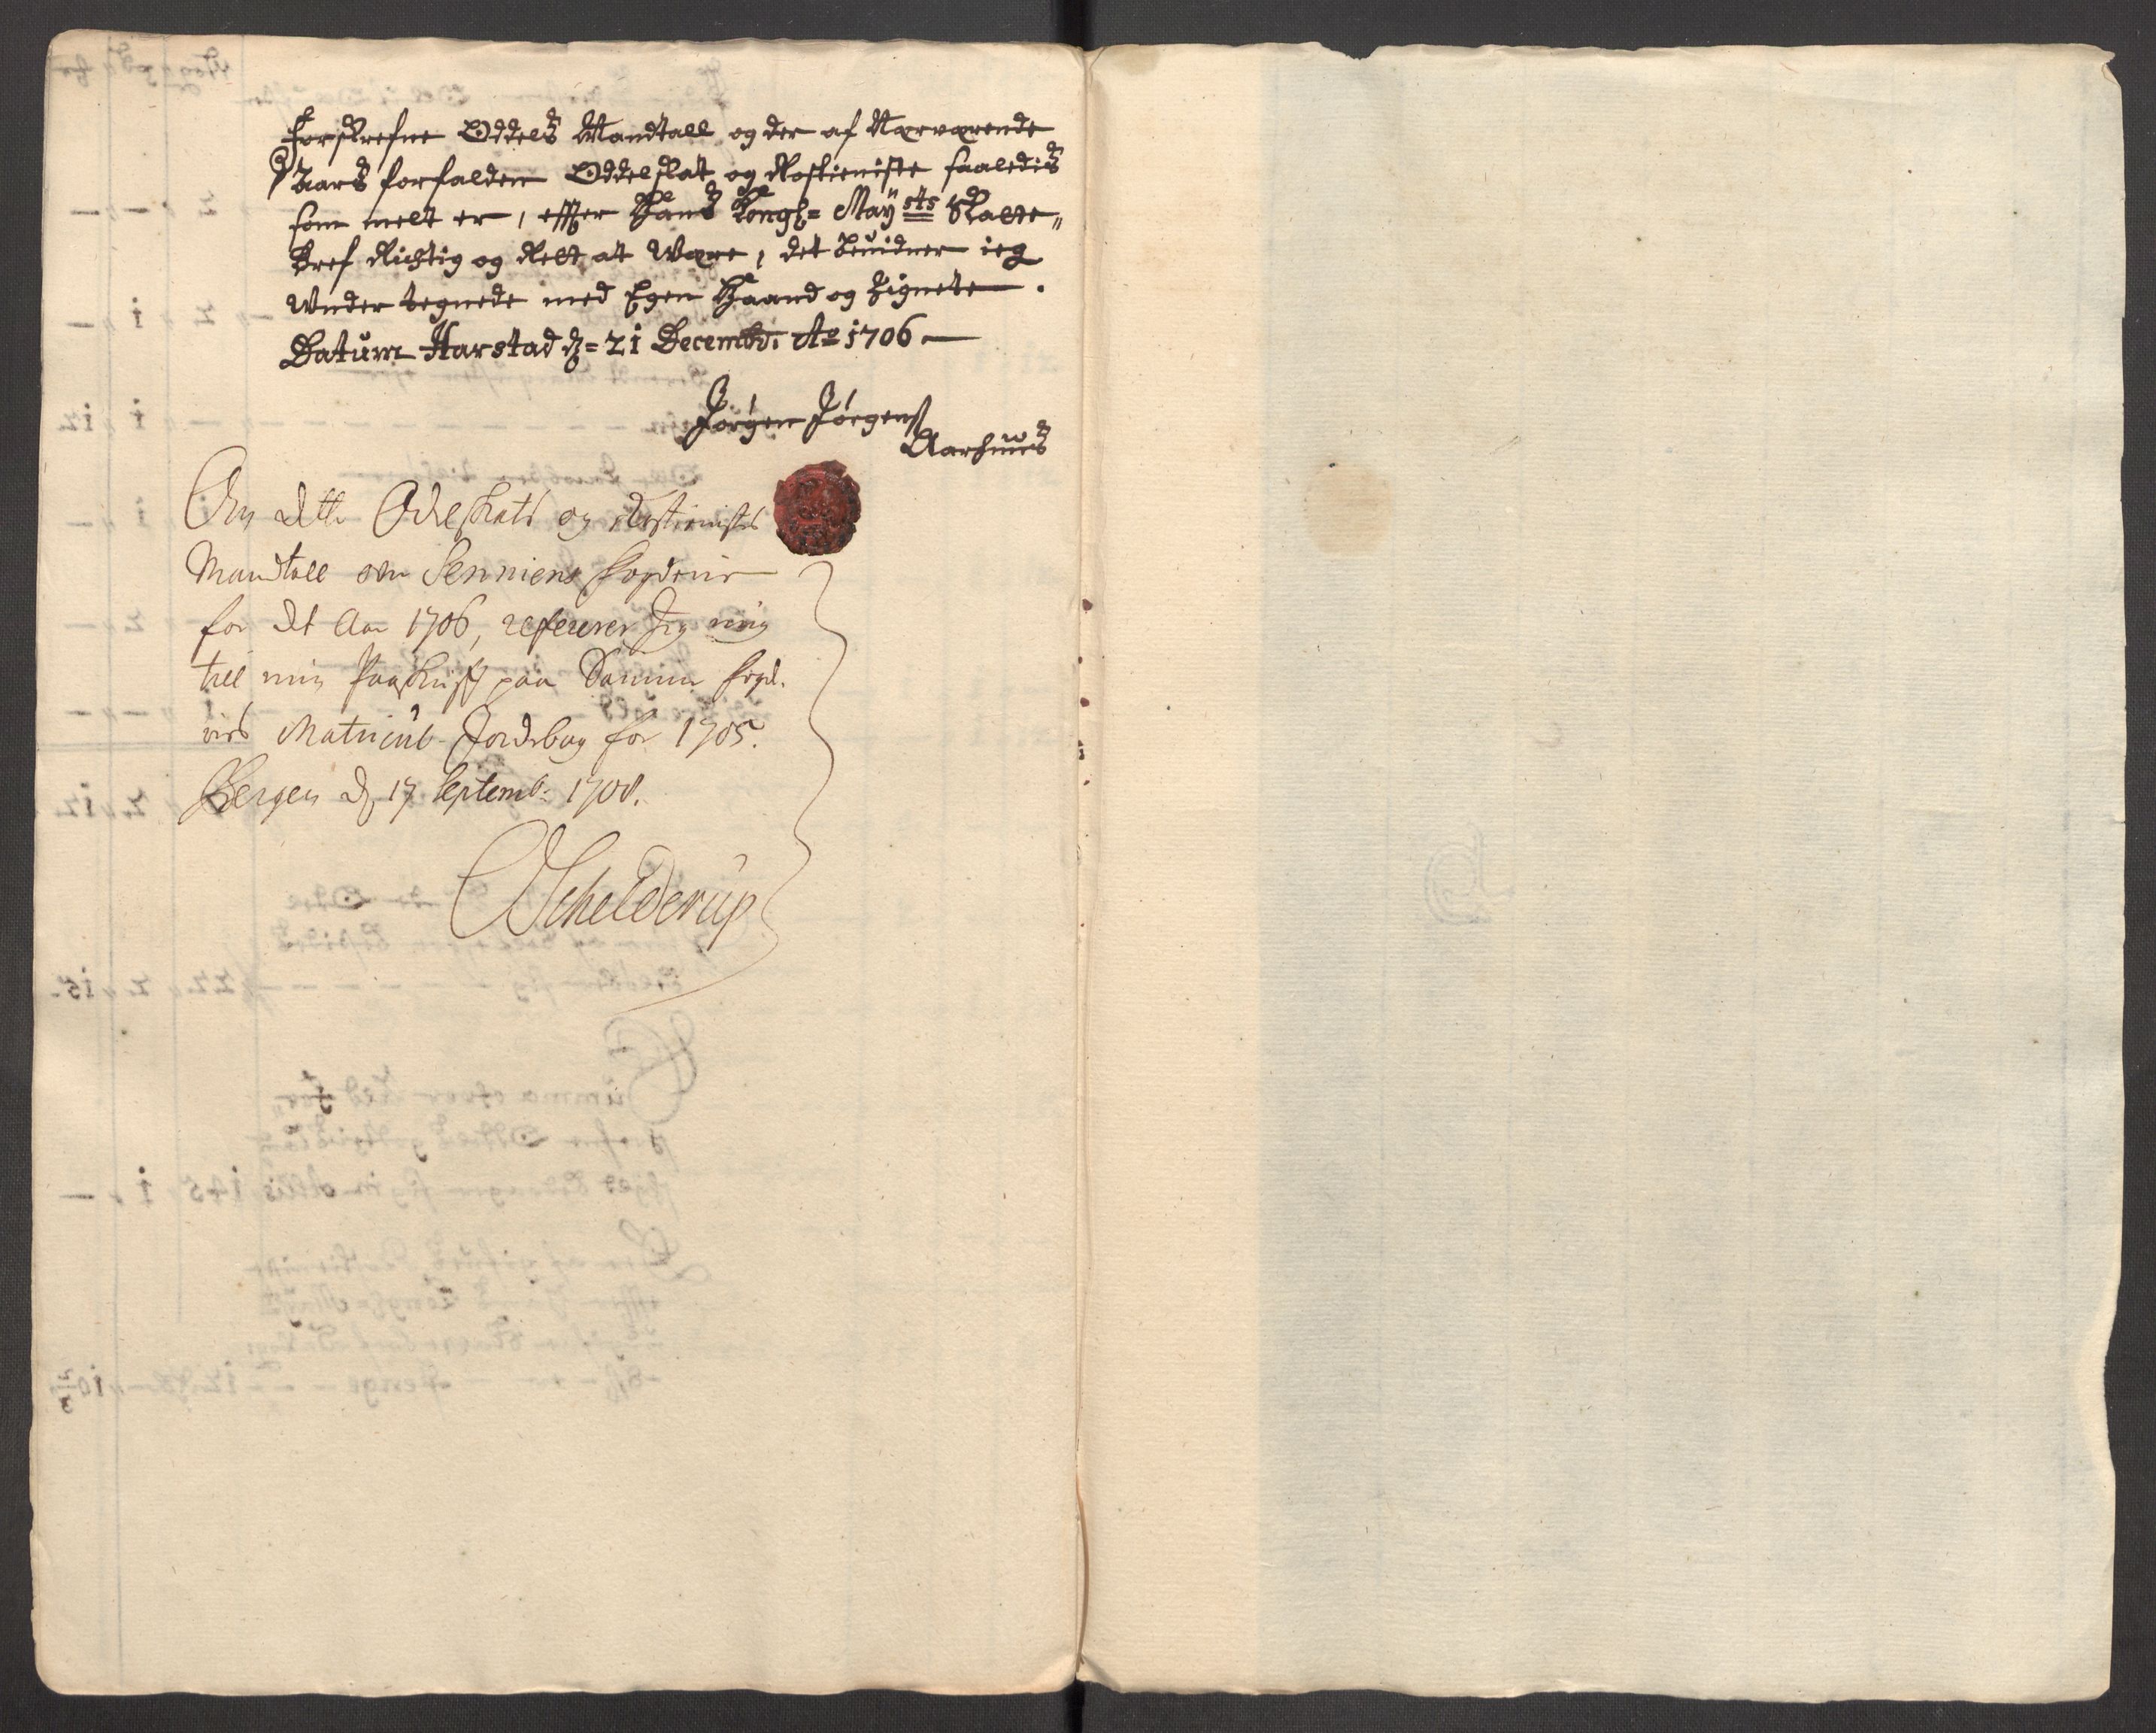 Forskrefne Oddels Mandtall og der af Nærværende
Aars forfalden Oddelskat og Rostieniste saaledis
som melt er, effter Hans Kongl= Maÿsts Skatte„
Bref Richtig og Rett at Være, det beuidner ieg
Vnder tegnede med Egen Haand og Zignete.
Datum Harstad d= 21 Decembr: Ao 1706
Jørgen Jørgens
Aarhuus
Om dette Odelskats og Rostienistes
Mandtall over Senniens fogderie
for det Aar 1706, refererer Jeg mig
till min Paaskrifft paa Samme fogd.
ries Matricul-Jordebog for 1705.
Bergen d 17 Septemb: 1708.
Schelderup